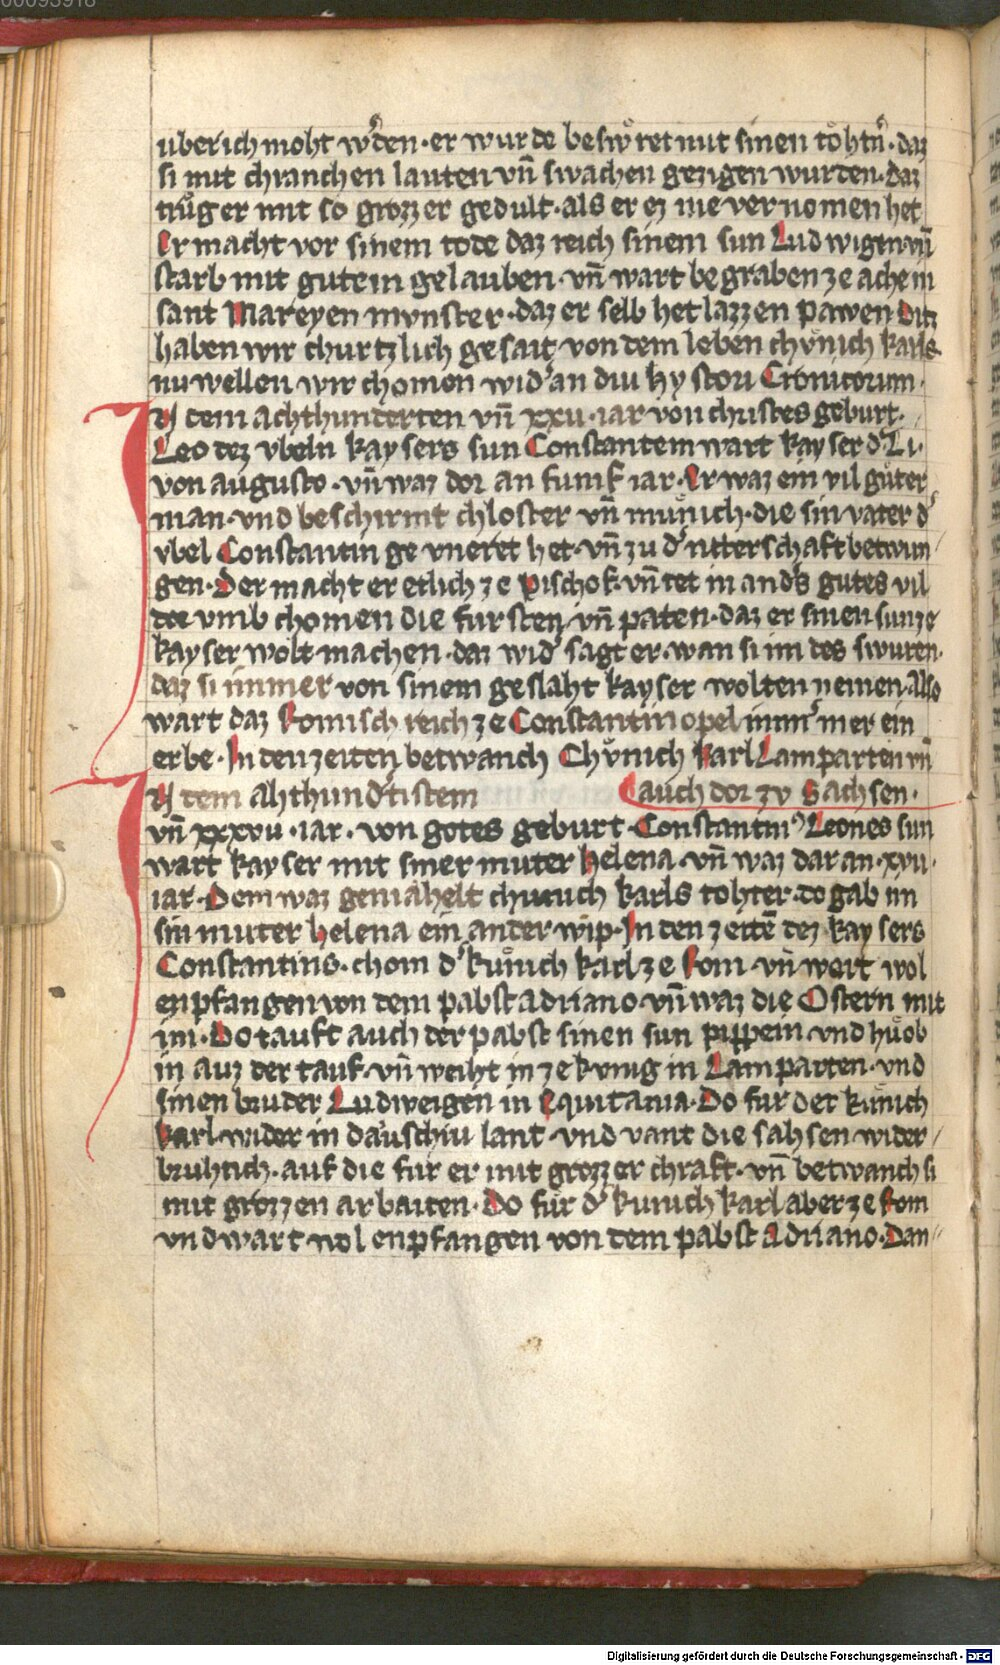 00093918
uberich moht wͦden · er wurde beswͤret mit sinen toͤhtn̄ · daz
si mit chranchen lauten vn̄ swachen gezigen wurden · daz
truͤg er mit so grozzer gedult · als er ez nie vernomen het
Er macht vor sinem tode daz reich sinem sun Ludwigen vn̄
starb mit gutem gelauben · vn̄ wart begraben ze achem
sant Mareyen mvnster · daz er selb het lazzen pawen Ditz
haben wir churtzlich gesait von dem leben chvͤnich Karls
nu wellen wir chomen widͤ an diu hystori Cronicorum ·
IN dem achthunderten vn̄ xxv · iar von christes geburt ·
Leo dez vbeln kaysers sun Constantein wart kayser dͤ Li ·
von augusto · vn̄ waz dor an funf iar · Er waz ein vil guͤter
man · vnd beschirmt chloster vn̄ muͤnich · die sin vater dͤ
vbel Constantin ge vneret het · vn̄ zu dͤ ritterschaft betwun
gen · Der macht er etlich ze pischof · vn̄ tet in andͤs gutes vil
doe vmb chomen die fursten vn̄ paten · daz er sinen sun ze
kayser wolt machen · daz widͤ sagt er · wan si im des swuren ·
daz si immer von sinem geslaht kayser wolten nemen · Also
wart daz Romisch reich ze Constantinopel immͤ mer ein
erbe · In den zeiten betwanch Chvͤnich karl Lamparten vn̄
IN dem ahthundͤtistem auch dor zv Sachsen ·
vn̄ xxxvu · iar · von gotes geburt · Constantinꝰ Leones sun
wart kayser mit siner muter Helena · vn̄ waz dar an · xvii ·
iar · Dem waz gemahelt chunich karls tohter · do gab im
sin muter helena ein ander wip · In den zeitē dez kaysers
Constantins · chom dͤ kuͤnich karl ze Rom · vn̄ wort wol
enpfangen von dem pabst adriano · vn̄ waz die Ostern mit
im · Do tauft auch der pabst sinen sun pippein · vnd huͦb
in auz der tauf · vn̄ weiht in ze kunig in Lamparten · vnd
sinen bruder Ludweigen in Equitania · Do fur der kuͤnich
karl wider in dauschiu lant · vnd vant die sahsen wider
bruhtich · auf die fur er mit grozzer chraft · vn̄ betwanch si
mit grozzen arbaiten · Do fur dͤ kunich karl aber ze Rom
vnd wart wol enpfangen von dem pabst adriano · Dan
Digitalisierung gefördert durch die Deutsche Forschungsgemeinschaft - DFG